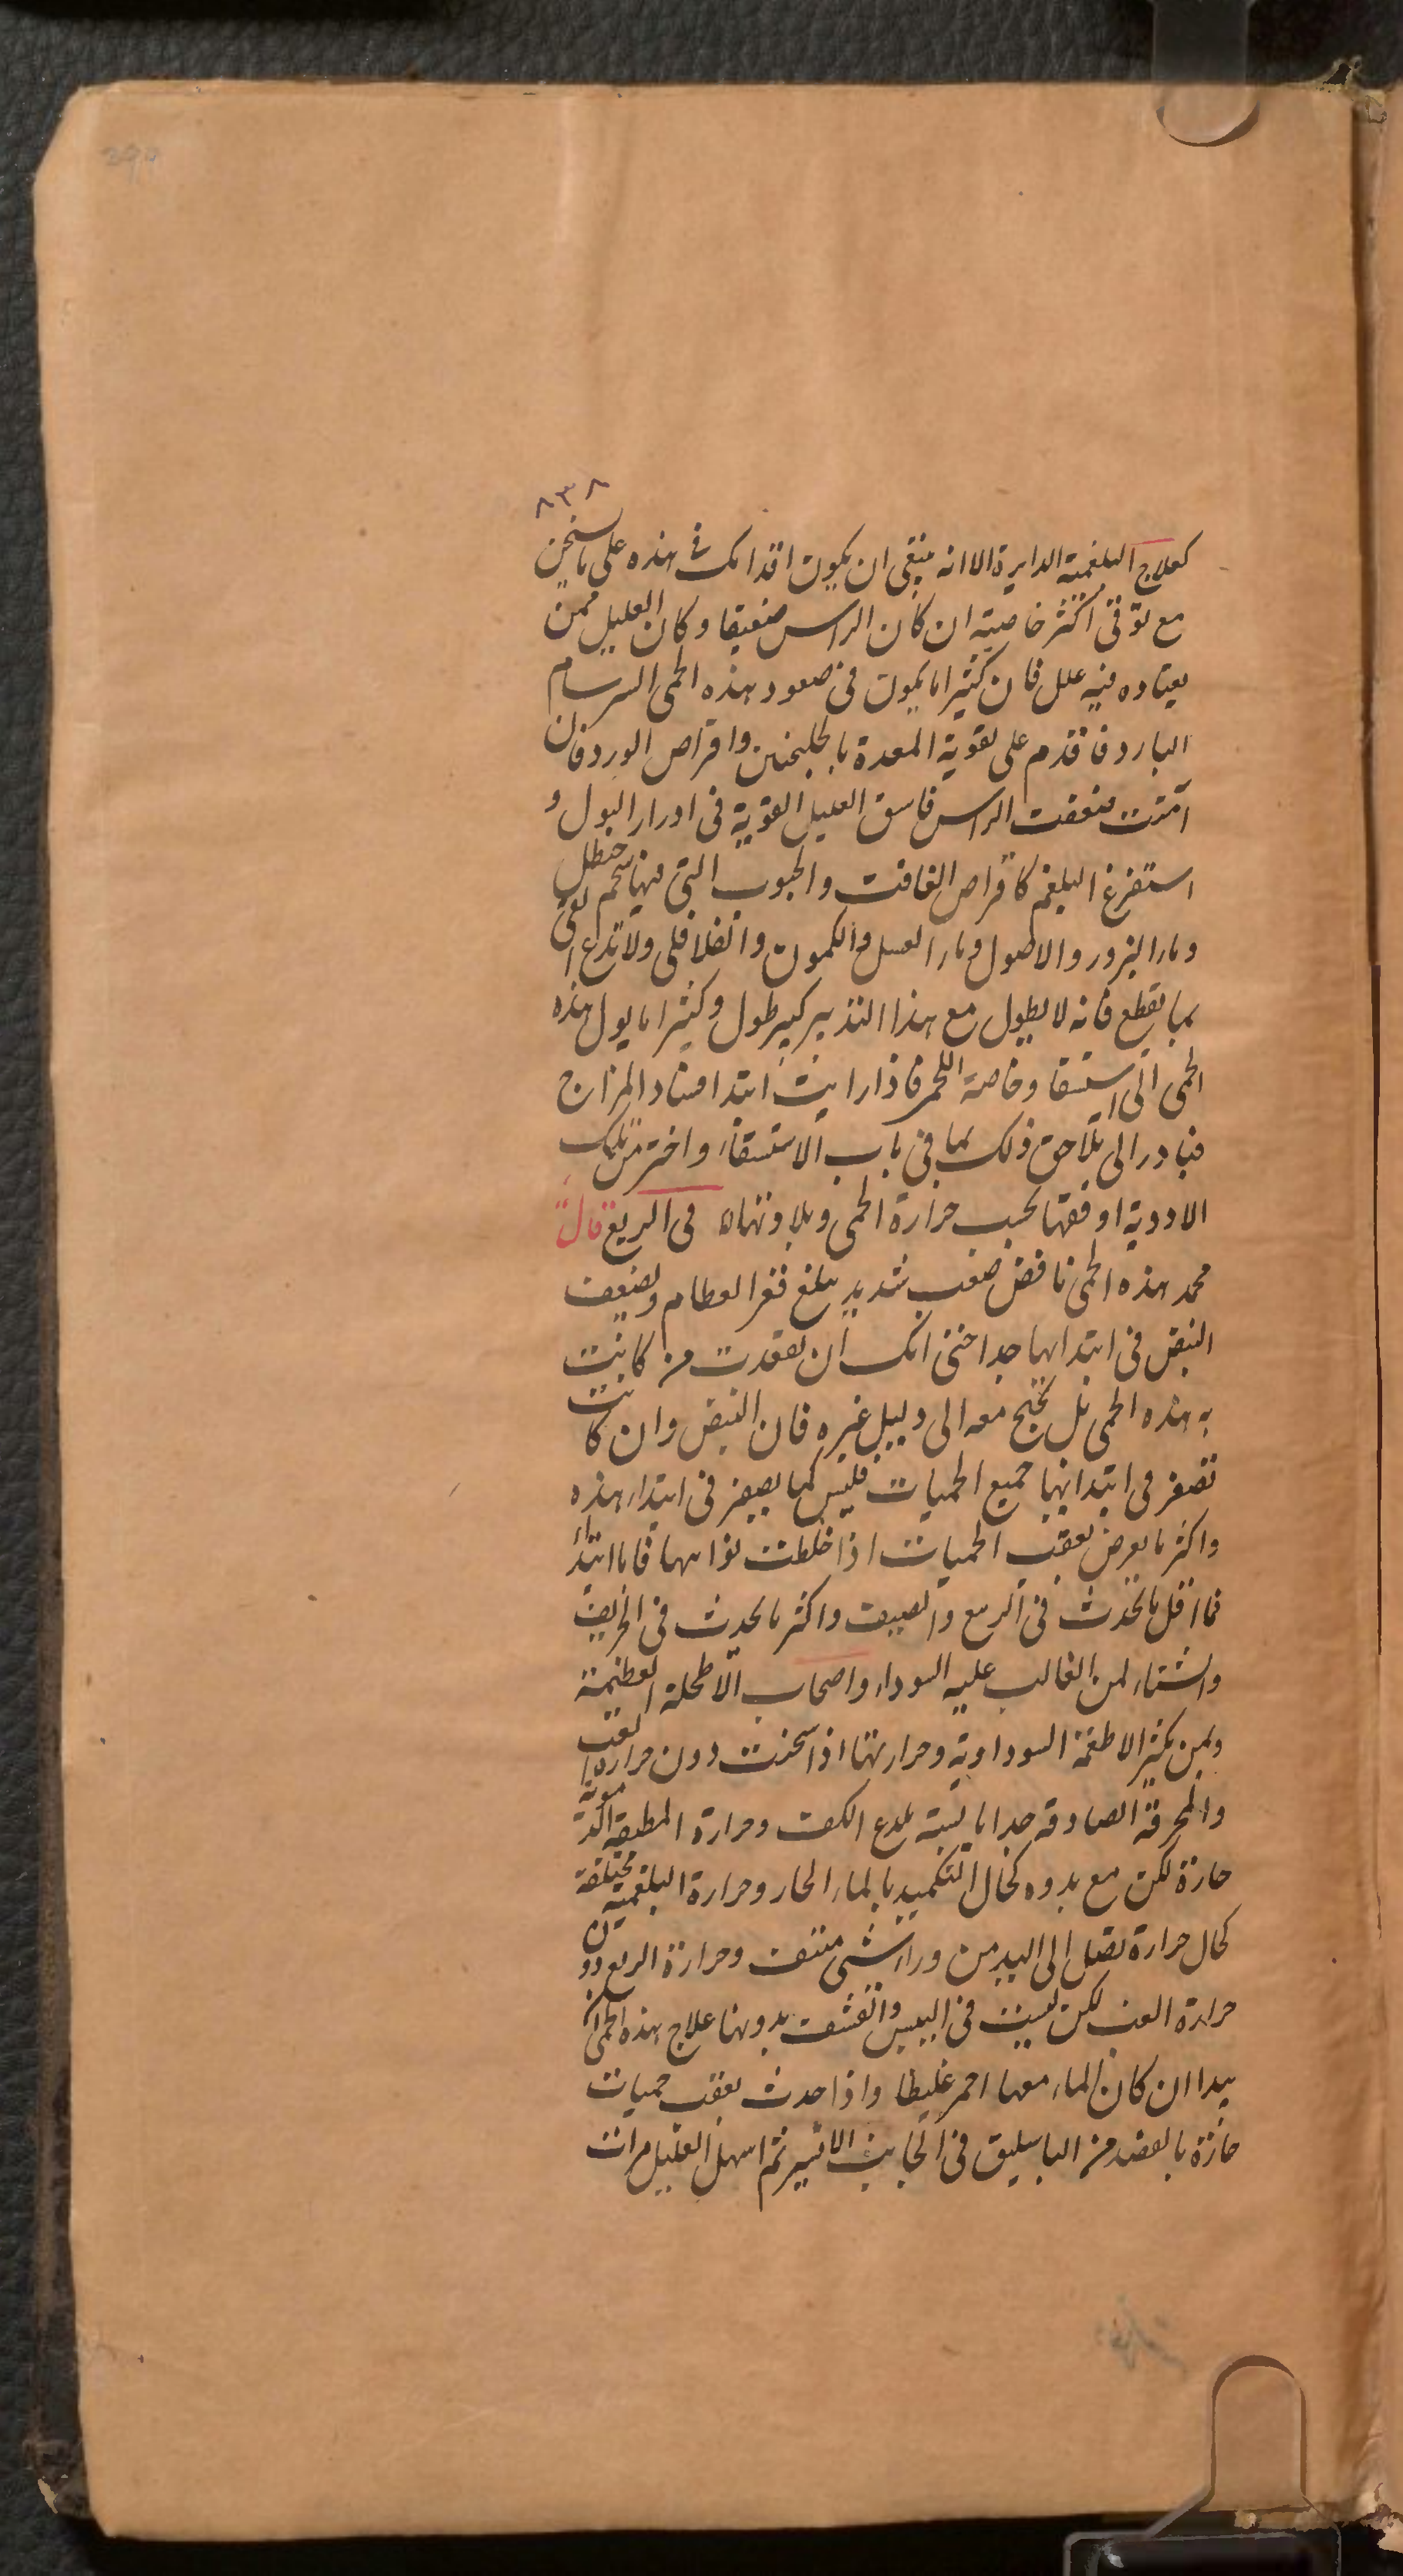 ٨٣٨
كعلاج البلغمية الدايرة الا انه ينبغى ان يكون اقدامك فى هذه على ما يسخن
مع توقى اكثر خاصية ان كان الراس ضعيفا وكان العليل ممن
يعتاده فيه علل فان كثيرا ما يكون فى صعود هذه الحمى السرسام
البارد فاقدم على تقوية المعدة بالجلنجبين واقراص الورد فان
آمنت ضعفت الراس فاسق العليل القوية فى ادرار البول و
استفرغ البلغم كاقراص الغافت والحبوب التى فيها شحم حنظل
وماء البزور والاصول وماء العسل والكمون والفلافلى ولا تدع القى
بما يقطع فانه لا يطول مع هذا التدبير كبير طول وكثيرا ما يول هذه
الحمى الى استسقا وخاصة اللحمى فاذا رايت ابتدا فساد المزاج
فبادر الى تلاحق ذلك بما فى باب الاستسقاء واختر من تلك
الادوية اوفقها بحسب حرارة الحمى وبلاوتها فى الربع قال
محمد هذه الحمى نافض صعب شديد يبلغ قعر العظام ويضعف
النبض فى ابتدايها جدا حتى انك ان تفقدت من كانت
به هذه الحمى لم تحتج معه الى دليل غيره فان النبض وان كانت
تصغر فى ابتدايها جميع الحميات فليس كما يصغر فى ابتداء هذه
واكثر ما يعرض بعقب الحميات اذا خلطت نوايبها فاما ابتداء
فما اقل ما تحدث فى الربيع والصيف واكثر ما يحدث فى الخريف
والشتاء لمن الغالب عليه السوداء واصحاب الاطحلة العظيمة
ولمن يكثر الاطعمة السوداوية وحرارتها اذا سخنت دون حرارة الغب
والمحرقة الصادقة جدا يابسة تلدع الكف وحرارة المطبقة الدموية
حارة لكن مع بدوه كحال التكميد بالماء الحار وحرارة البلغمية مختلفة
كحال حرارة تصل الى اليد من وراء شى منتف وحرارة الربع دون
حرارة الغب لكن ليست فى اليبس والقشف بدونها علاج هذه الحمى ان
يبدا ان كان الماء معها احمر غليظا واذا حدث بعقب حميات
حارة بالفصد من الباسليق فى الجانب الايسر ثم اسهل العليل مرات